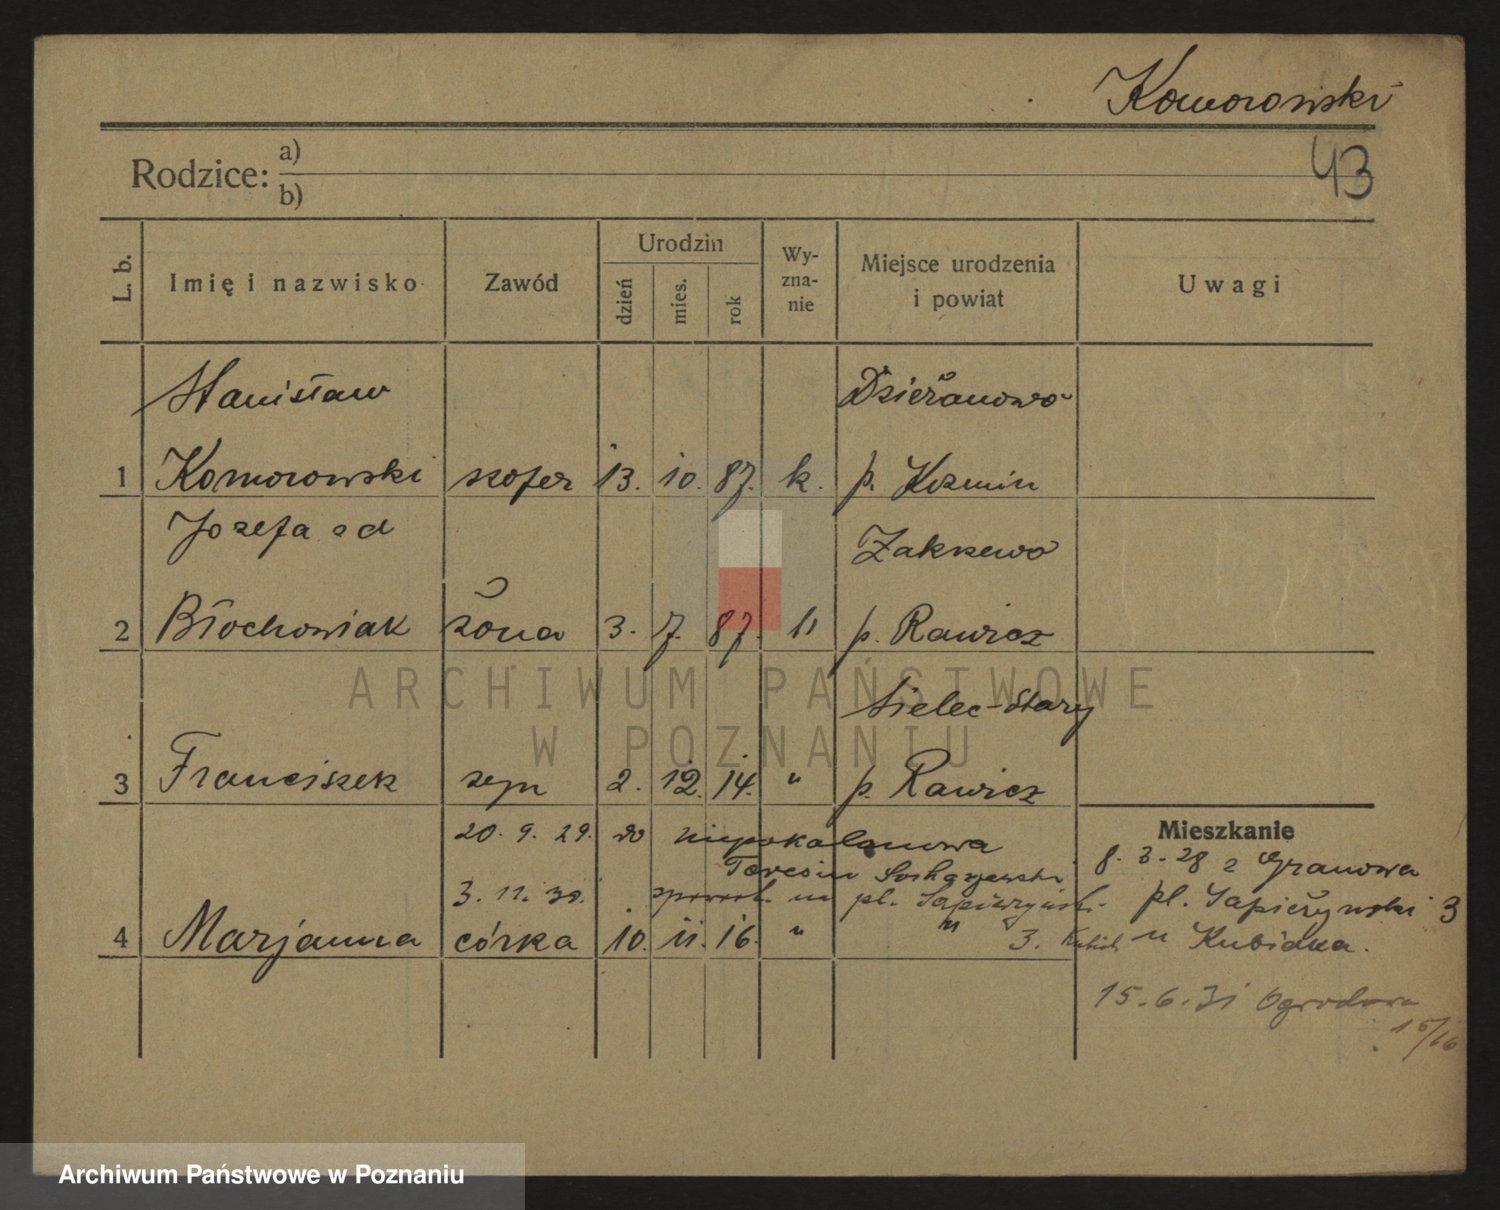 Komorowski
43
Rodzice: a)
b)
L. b.
Imię i nazwisko
Zawód
Urodzin
dzień
mies.
rok
Wy-
zna-
nie
Miejsce urodzenia
i powiat
Uwagi
Stanisław
Dzierżanowo
1 Komorowski szofer 13. 10. 87. k. p. Kozmin
Jozefa od
Zakrzewo
2 Błochowiak żona 3. 7. 87. " p. Rawicz
Sielec-Stary
3 Franciszek syn 2. 12. 14. " p. Rawicz
20. 9. 29. do Niepokalanowa
Teresin Sochaczewski
3. 11. 30. spowrot. na pl. Sapieżyński
4 Marjanna córka 10. 11. 16. " " 3.
Mieszkanie
8. 3. 28 z Granowa
pl. Sapieżyński 3
u Kubiaka.
15. 6. 31 Ogrodowa
15/16
ARCHIWUM PAŃSTWOWE
W POZNANIU
Archiwum Państwowe w Poznaniu